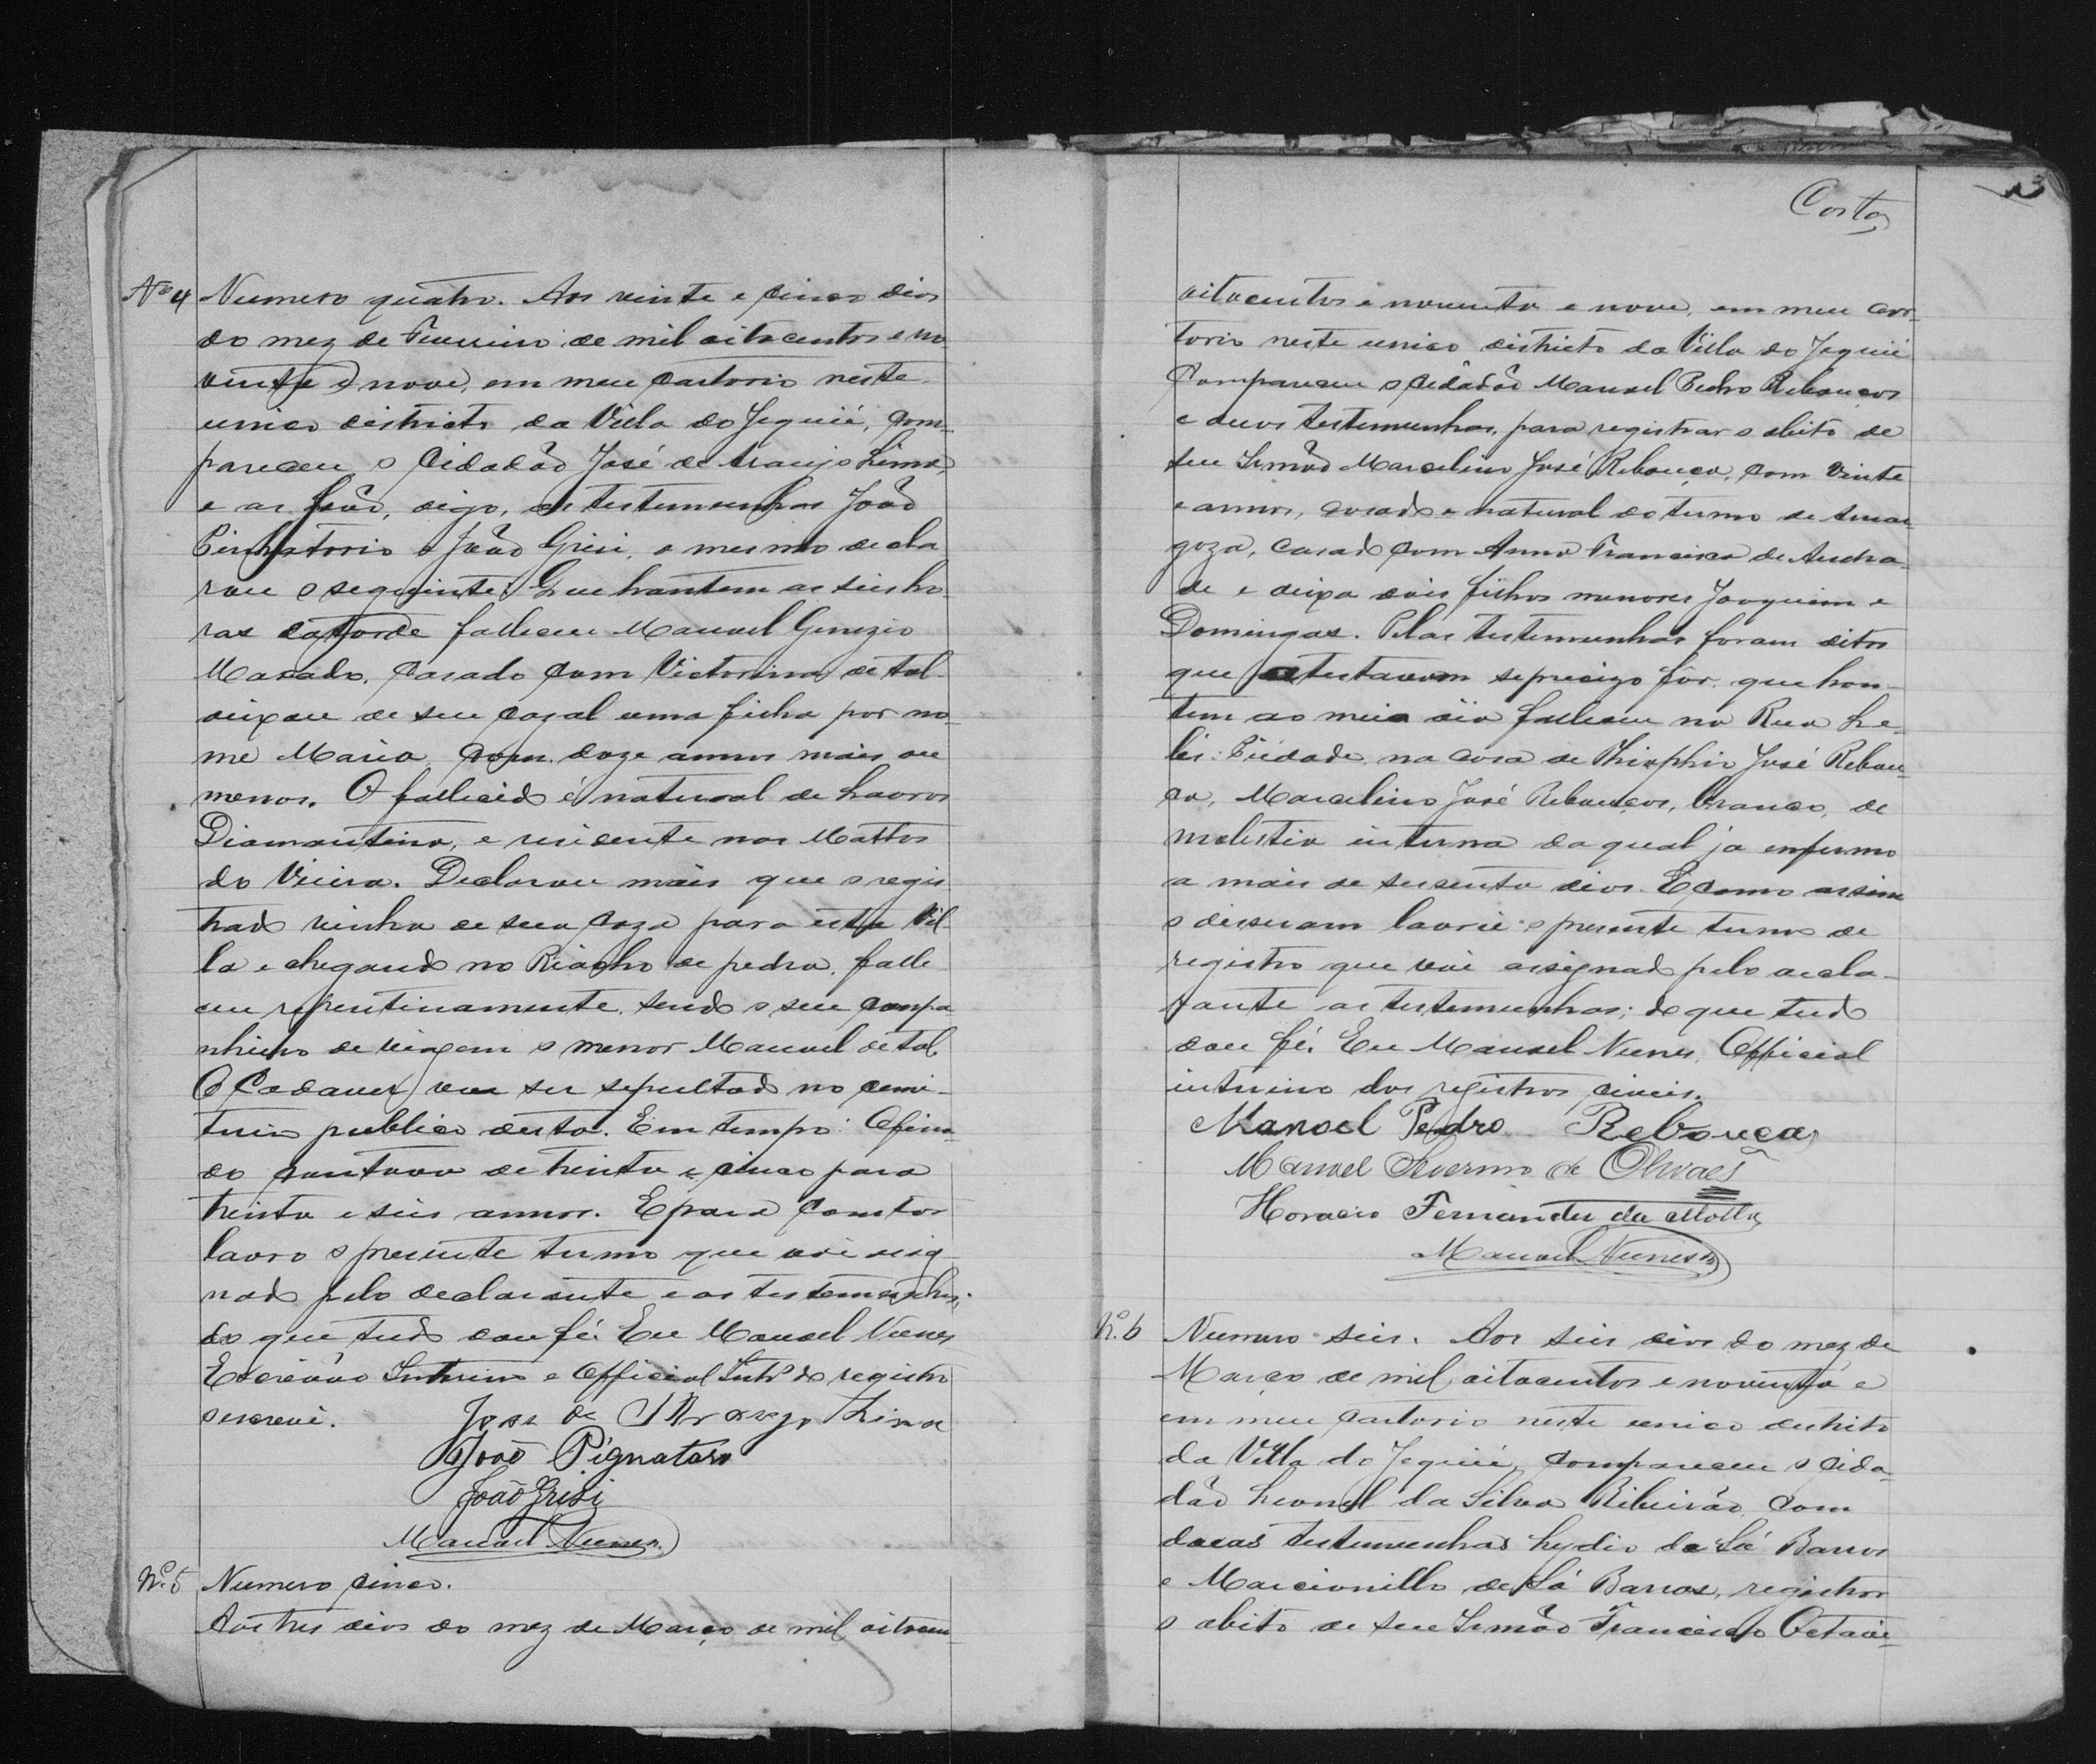 Nº 4 Numero quatro. Aos vinte e cinco dias
do mez de Fevereiro de mil oitocentos e no
venta e nove, em meu cartorio neste
unico districto da Villa do Jequié, com-
pareceu o Cidadão José de Araujo Lima,
e as João, digo, as testemunhas João
Pinhatorio e João Grisi, o mesmo decla
rou o seguinte: Que hontem as seis ho-
ras da tarde falleceu Manoel Genezio
Macado, casado com Victorina de tal
deixou de seu cazal uma filha por no-
me Maria, com doze annos mais ou
menos. O fallecido é natural de Lavras
Diamantina, e residente nas Mattas
do Vieira. Declarou mais que o regis
trado vinha de sua caza para esta Vil
la e chegando no Riacho de pedra, falle
ceu repentinamente, sendo o seu compa
nheiro de viagem o menor Manoel de tal.
O Cadaver vae ser sepultado no cemi-
terio publico desta. Em tempo: O fina
do contava de trinta e cinco para
trinta e seis annos. E para constar
lavro o presente termo que vai assig-
nado pelo declarante e as testemunhas;
do que tudo dou fé. Eu Manoel Nunes
Escrivão Interino e Official Intº do registro
o escrevi. José de Araujo Lima
João Pignataro
João Grisi
Manoel Nunes
Nº 5 Numero cinco.
Aos tres dias do mez de Março de mil oitocen
3
Costa
oitocentos e noventa e nove, em meu car-
torio neste unico districto da Villa do Jequié
Compareceu o cidadão Manoel Pedro Rebouças
e duas testemunhas, para registrar o obito de
seu Irmão Marcelino José Rebouça, com vinte
e annos, casado e natural do termo de
goza, casado com Anna Francisca de Andra-
de e deixa dois filhos menores Joaquim e
Domingas. Pelas testemunhas foram ditos
que attestavam se precizo fôr, que hon-
tem ao meio dia falleceu na Rua
Piedade, na casa de José Rebou-
ça, Marcelino José Rebouças, branco, de
molestia interna da qual já enfermo
a mais de sessenta dias. E como assim
o disseram lavrei o presente termo de
registro que vai assignado pelo decla-
rante as testemunhas; do que tudo
dou fé. Eu Manoel Nunes, Official
interino dos registros civeis.
Manoel Pedro Rebouças
Manoel Severino de
Horacio Fernandes da Motta
Manoel Nunes
Nº. 6 Numero seis. Aos seis dias do mez de
Março de mil oitocentos e noventa e
em meu cartorio neste unico districto
da Villa do Jequié, compareceu o cida-
dão Leonel da Silva Ribeirão, com
duas testemunhas Lydio de Sá Barros
e Marcionillo de Sá Barros, registrar
o obito de seu Irmão Francisco Octavi-